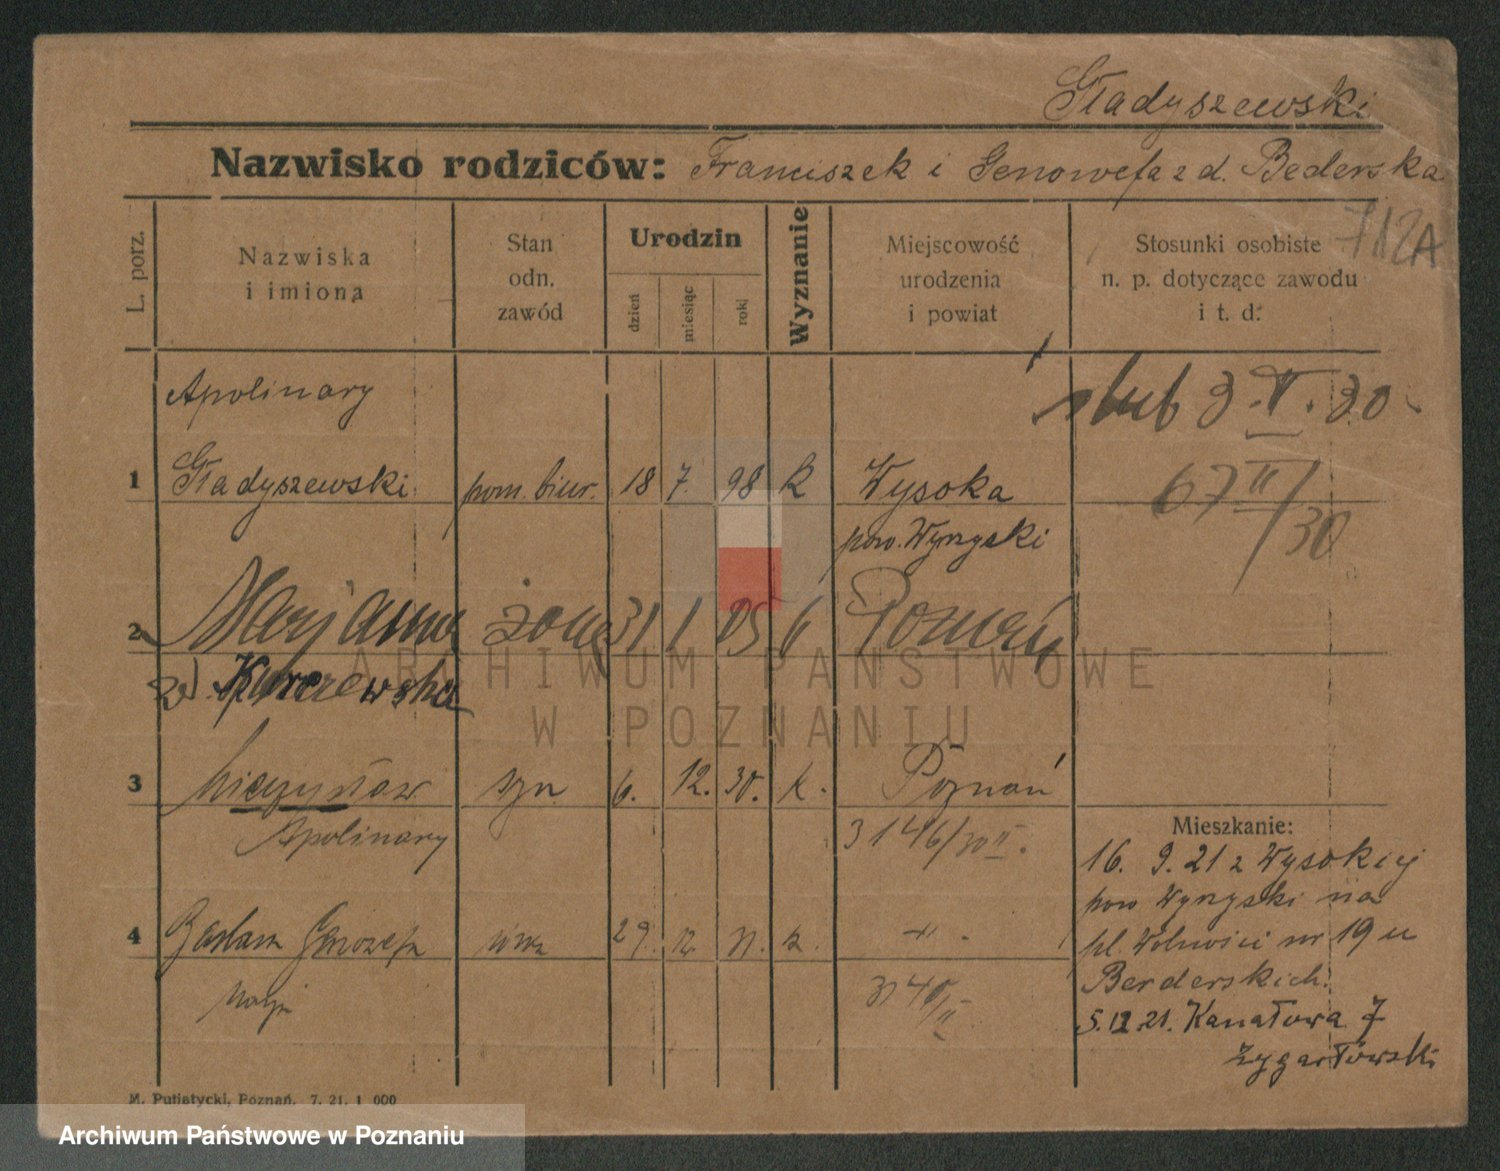 Gładyszewski
Nazwisko rodziców: Franciszek i Genowefa z d. Bederska
712A
L. porz.
Nazwiska i imiona
Stan odn. zawód
Urodzin
dzień
miesiąc
rok
Wyznanie
Miejscowość urodzenia i powiat
Stosunki osobiste n. p. dotyczące zawodu i t. d.
Apolinary
ślub 3.V.30
1 Gładyszewski pom. biur. 18 7. 98 k Wysoka
67 II/30
pow. Wyrzyski
2 Marjanna żona 31 1 05 k Poznań
zd. Kurczewska
3 Mieczysław syn 6. 12. 30. k. Poznań
Apolinary
3146/30 II.
Mieszkanie:
16. 9. 21 z Wysokiej
pow Wyrzyski na
4 Barbara Genowefa 29. 12. 31. k. -"-
pl. Wolności nr 19 u
Berderskich.
5.12.21. Kanałowa 7
M. Putiatycki, Poznań. 7. 21. 1 000
ARCHIWUM PAŃSTWOWE
W POZNANIU
Archiwum Państwowe w Poznaniu